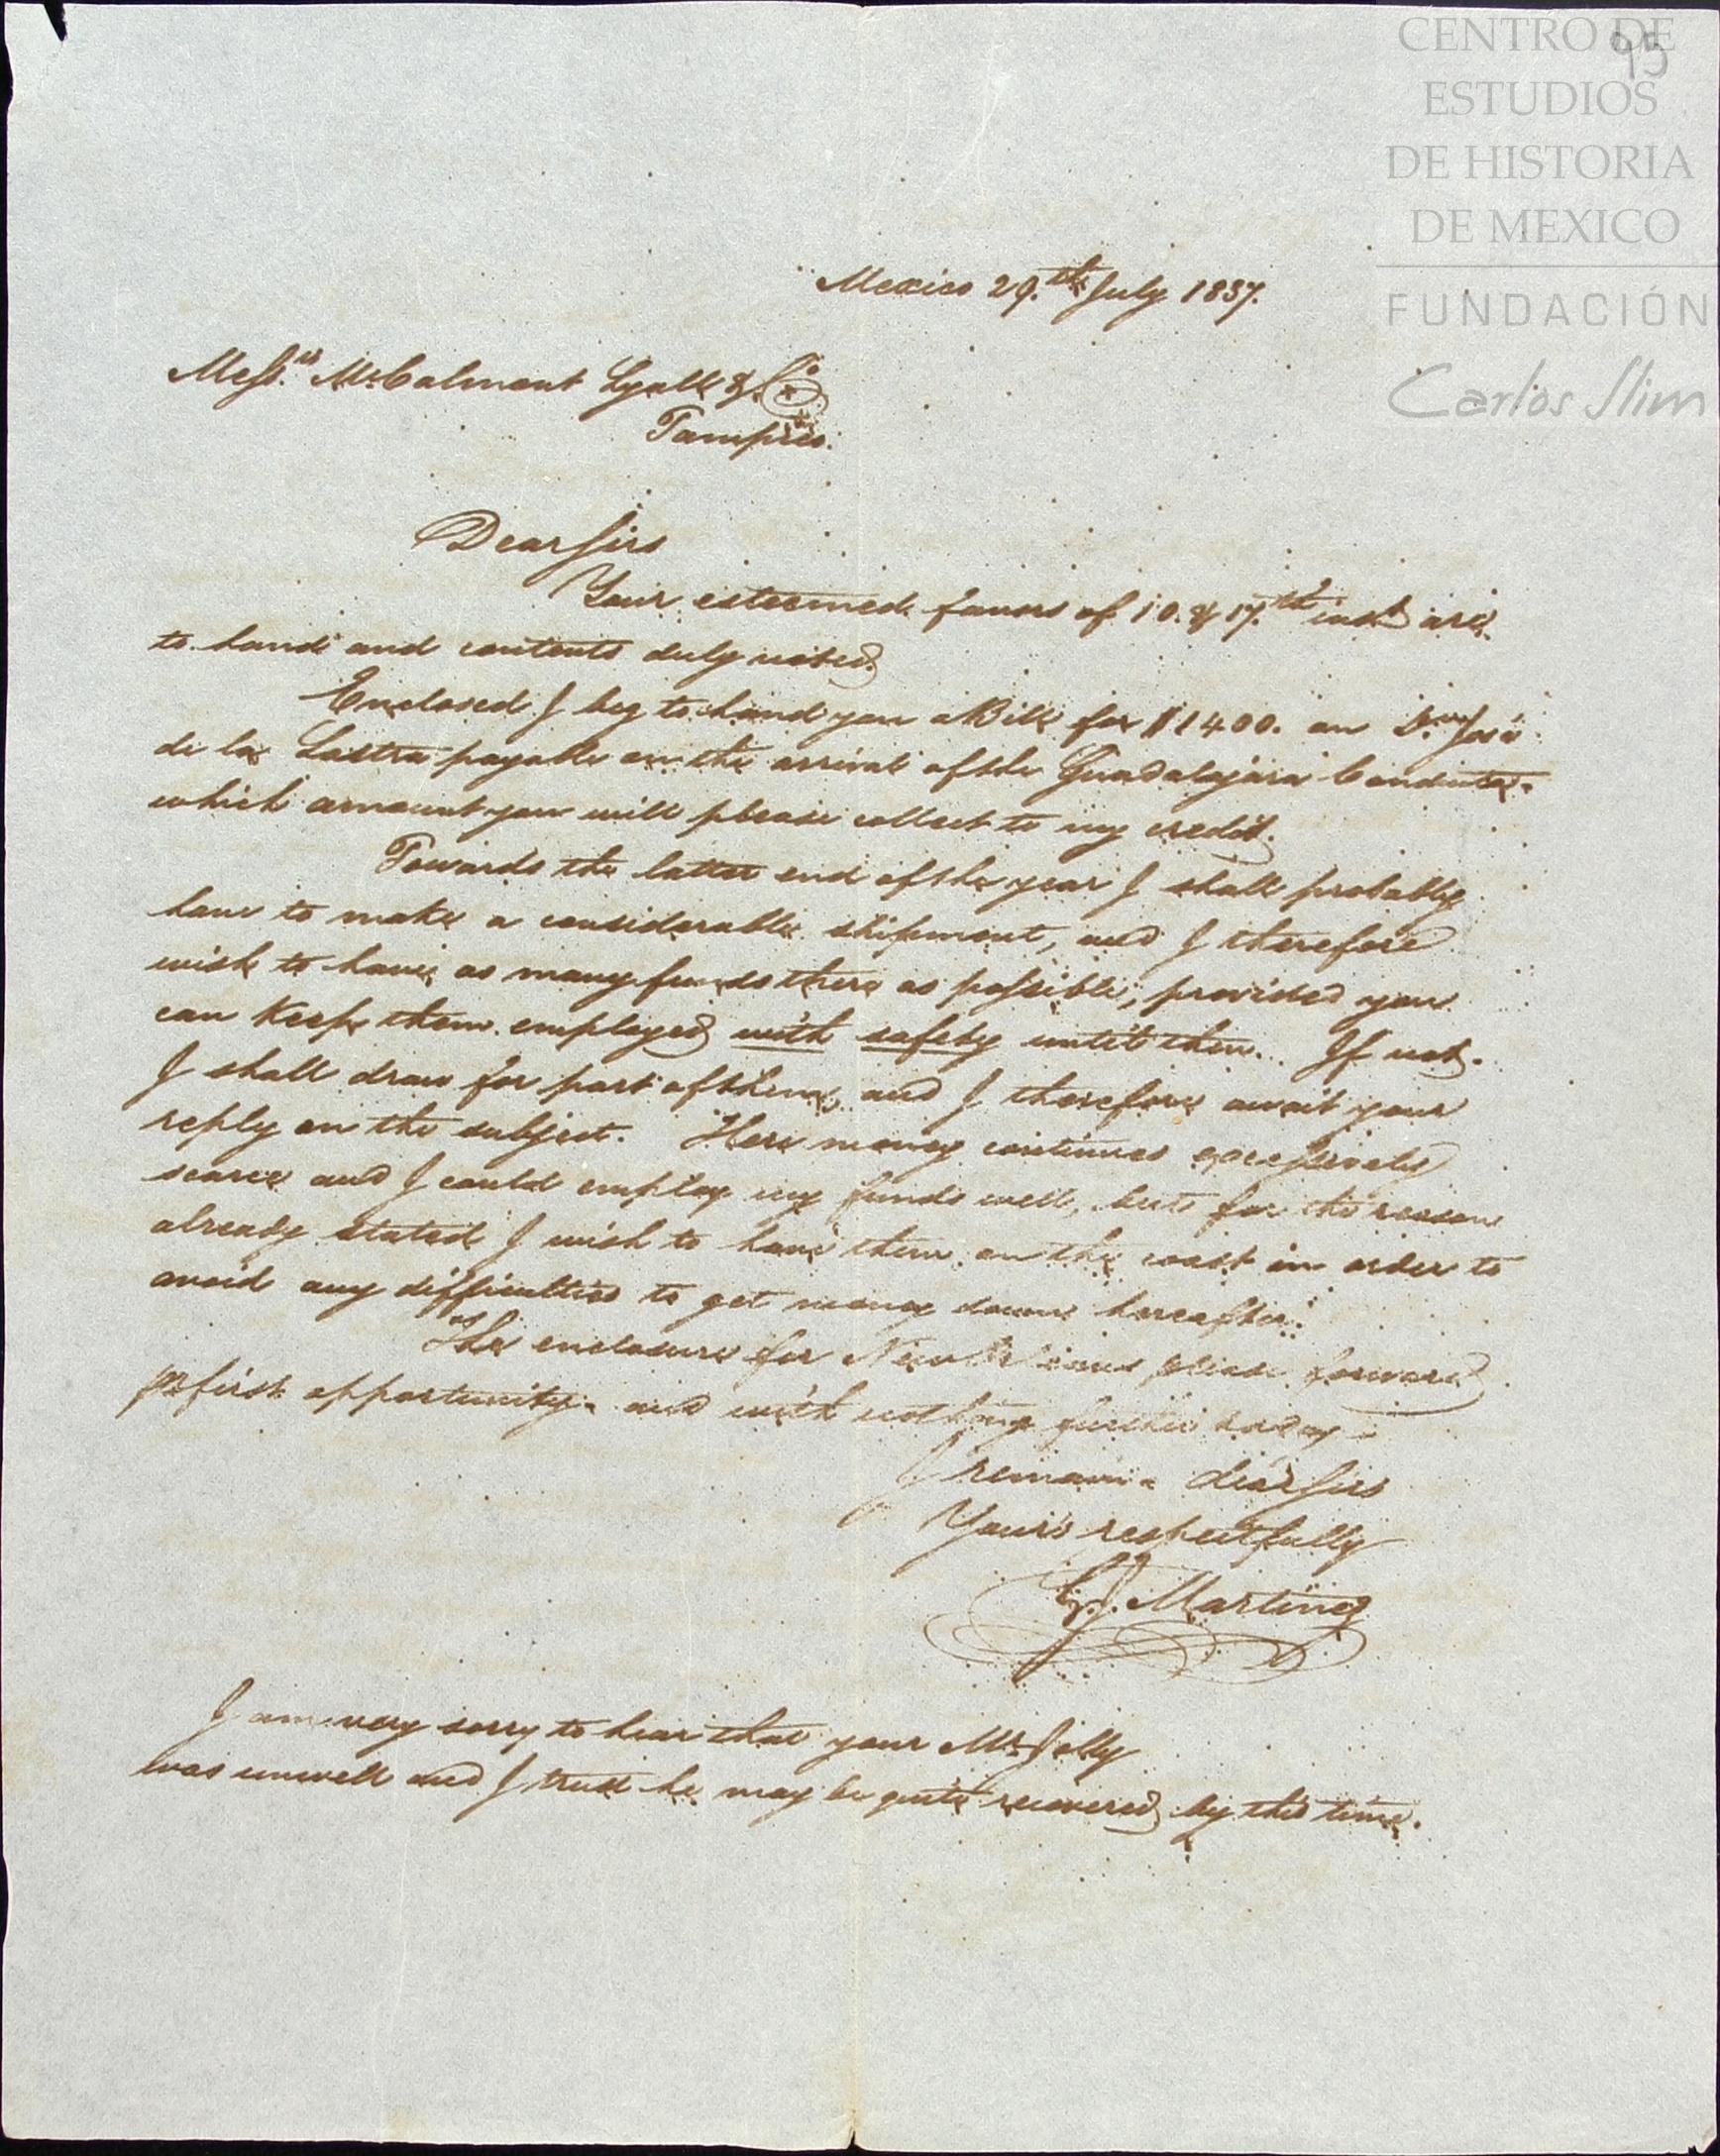 CENTRO DE
ESTUDIOS
DE HISTORIA
DE MEXICO
FUNDACIÓN
Carlos Slim
95
Mexico 29.th July 1837.
Messrs. McCalmont Lyall & Co.
Tampico.
Dear Sirs
Your esteemed favors of 10. & 17.th inst. are
to hand and contents duly noted.
Enclosed I beg to hand you a Bill for $1400. on Dn. José
de la Lastra payable on the arrival of the Guadalajara Conducta.
which amount you will please collect to my credit.
Towards the latter end of the year I shall probably
have to make a considerable shipment, and I therefore
wish to have as many funds there as possible, provided you
can keep them employed with safety until then. If not.
I shall draw for part of them, and I therefore await your
reply on the subject. Here money continues excessively
scarce and I could employ my funds well, but for the reason
already stated I wish to have them on the coast in order to
avoid any difficulties to get money down hereafter.
The enclosure for New Orleans please forward
pr first opportunity. and with nothing further today
I remain dear Sirs
Yours respectfully
Martinez
I am very sorry to hear that your Mr. Jolly
was unwell and I trust he may be quite recovered by this time.